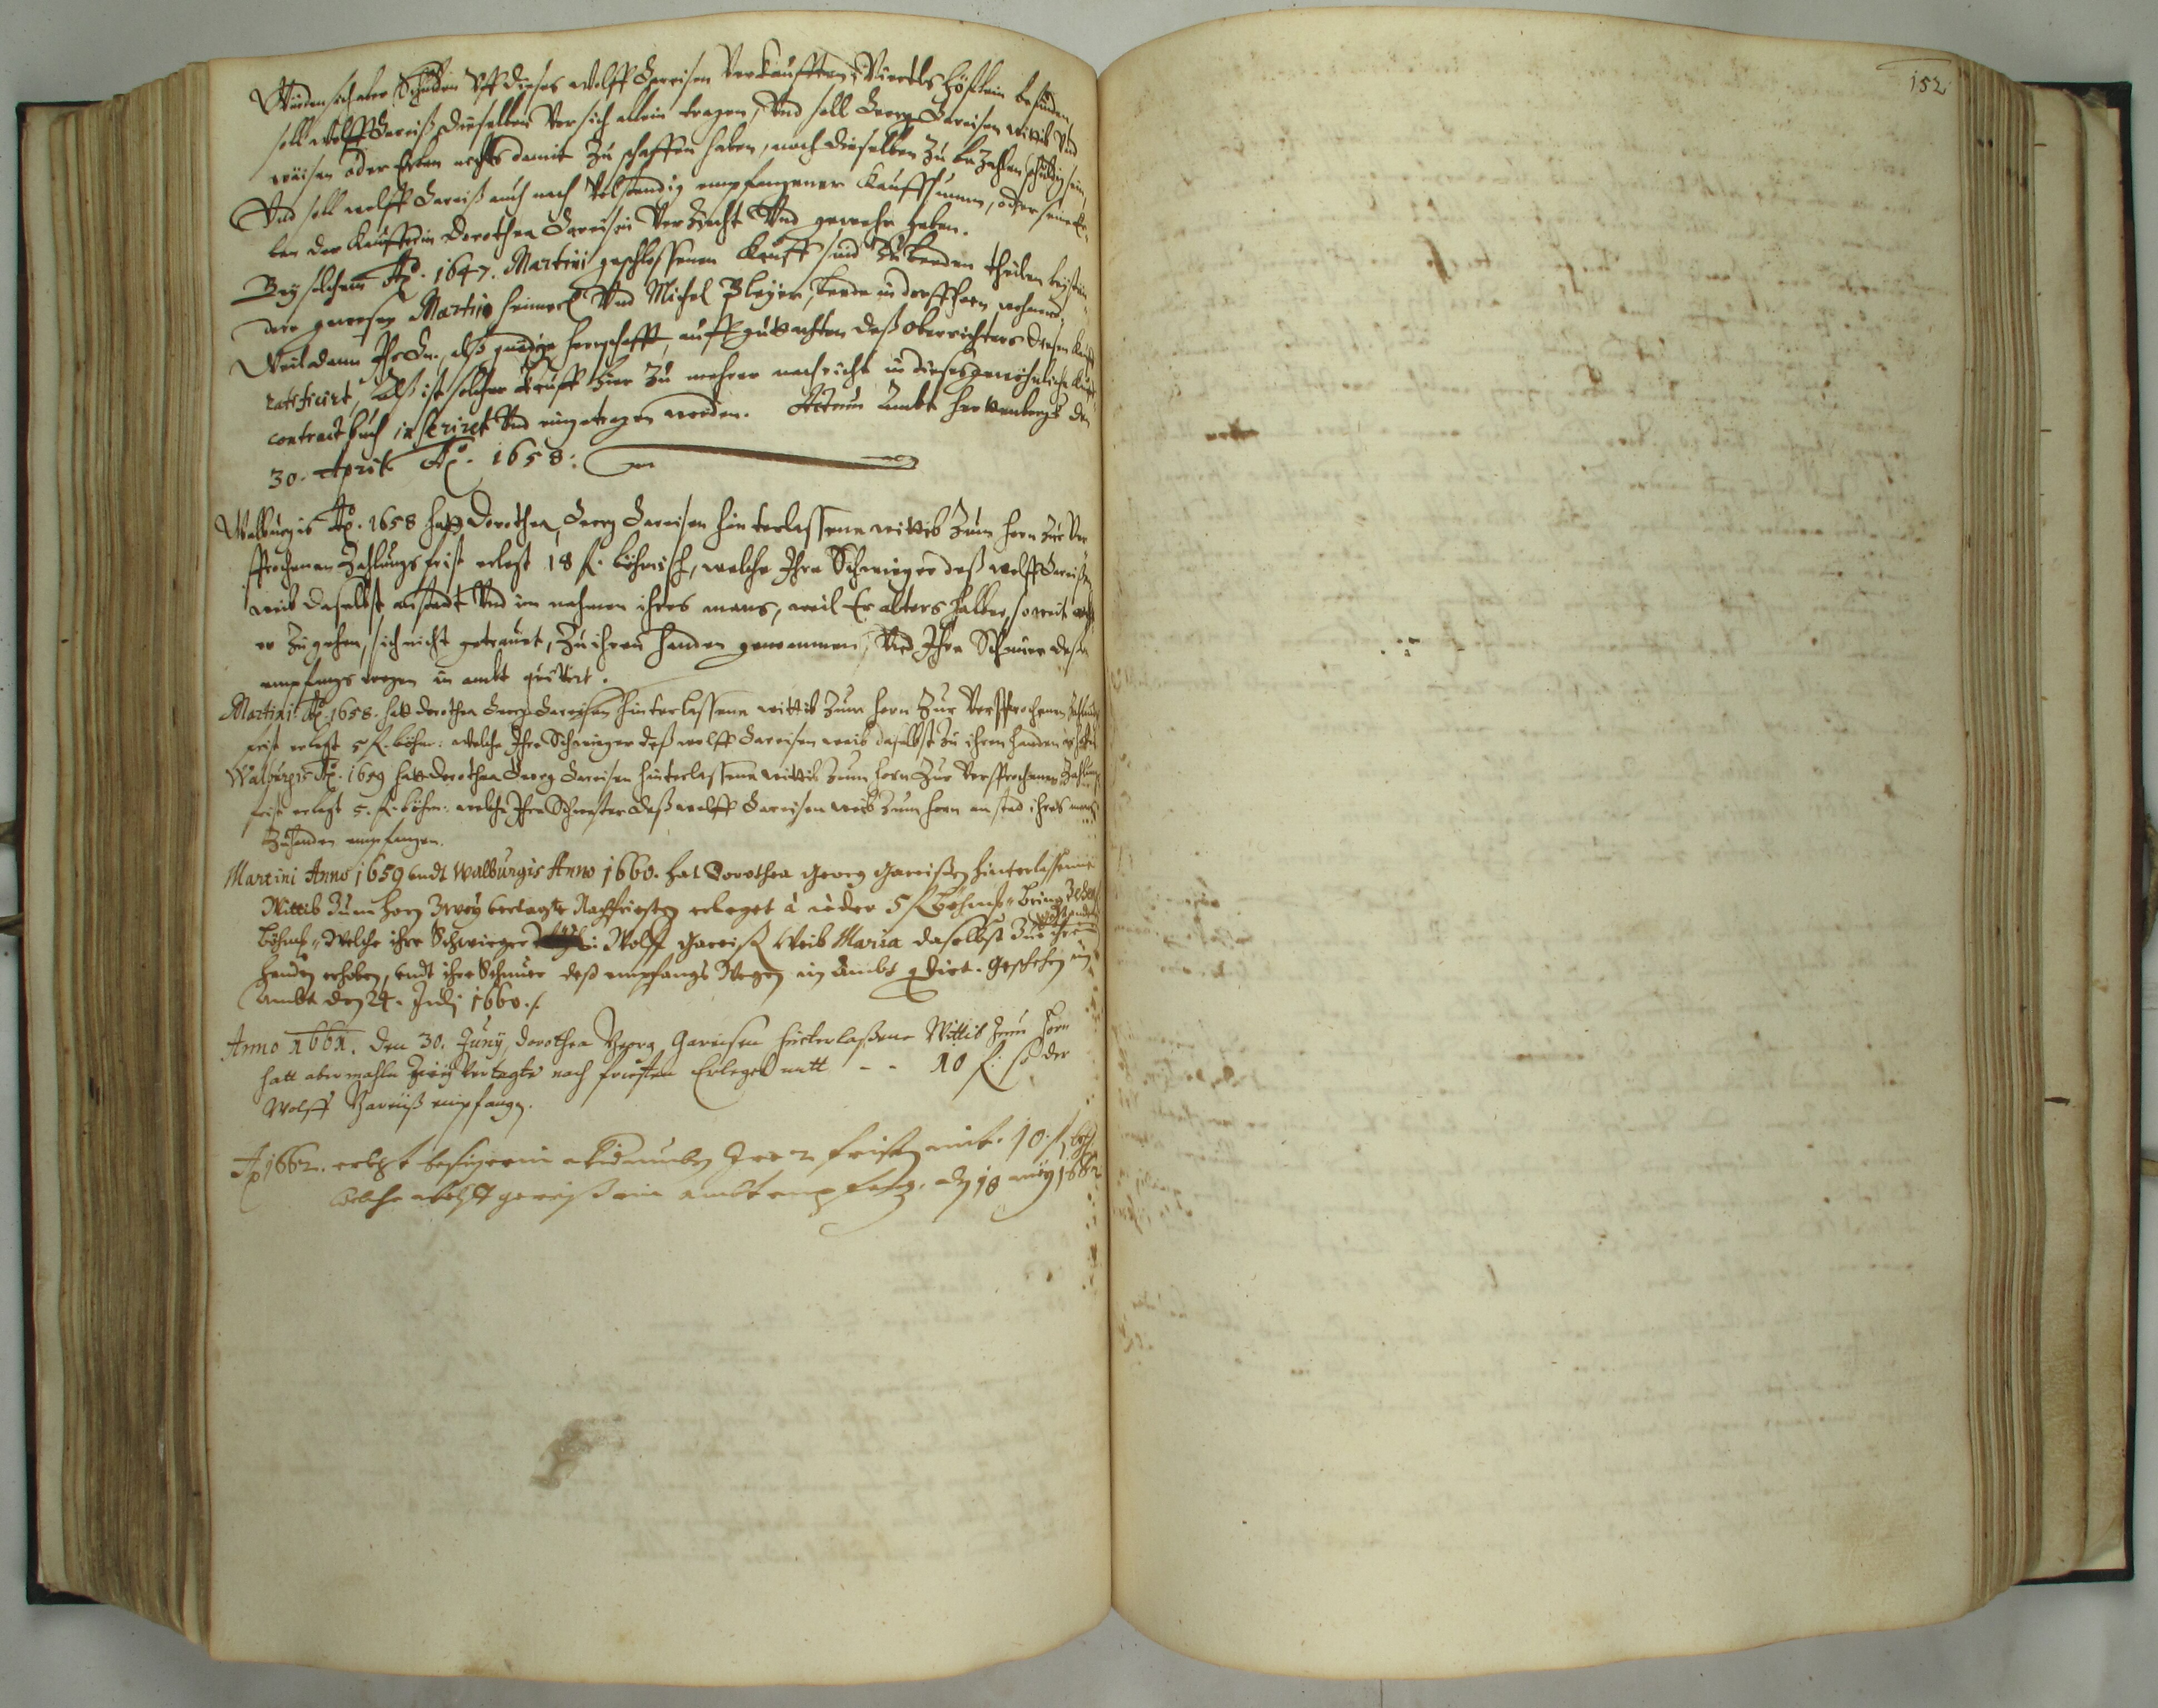 Würden sich aber Schulden Uff dieses Wolff Gareisen Verkaufften Viertls höfflein befinden,
soll Wolff Gareiß dieselben Vor sich allein tragen, Und soll Georg Gareisen wittib Und
waisen oder Erben nichts damit Zu schaffen haben, noch dieselben Zu bezahlen schuldig sein,
Und soll wolff Gareiß auch nach Volstendig empfangener Kauffsumm, oder seine Er-
ben der Kaufferin Dorothea Gareisin Verzücht Und gewehr haben.
Bey solchem Ao. 1647. Martini geschlossenen Kauff sind Zu beeden theilen beystän-
dere gewesen Martin Und Michel Pleyer, beede in dorff horn wohnend.
Weil dann Ihr Gn. alß gnedige herrschafft, auff guttachten deß Oberrichters diesen Kauff
ratificirt, Alß ist solcher Kauff hier Zu mehrer nachricht in dieses gewöhnliche Kauff
contract buch inserirt Und eingetragen worden. Actum Ambt hartenbergk den
30. Aprils Ao. 1658.
Walburgis Ao. 1658 hatt Dorothea, Georg Gareisen hinterlassene wittib Zum horn Zur Ver
sprochenen Zahlungs frist erlegt 18 fl. böhmisch, welche Ihre Schwieger deß wolff Gareisen
weib daselbst anstadt Und im nahmen ihres mans, weil Er alters halber, so weit
er Zu gehen, sich nicht getrauet, Zu ihren handen genommen, Und Ihre Schnuer deß
empfangs wegen in ambt quitirt.
Martini Ao. 1658. hatt dorothea Georg Gareisen hinterlassene wittib Zum horn Zur Versprochenen Zahlungs
frist erlegt 5 fl. böhm: welche Ihre Schwieger deß wolff Gareisen weib daselbst Zu ihren handen erhoben
Walburgis Ao. 1659 hatt dorothea Georg Gareisen hinterlassene wittib Zum horn Zur Versprochenen Zahlungs
frist erlegt 5. fl. böhm: welche Ihre Schwester deß wolff Gareisen weib Zum horn an stad ihres mans
Zuhanden empfangen.
Martini Anno 1659 undt Walburgis Anno 1660. hat Dorothea Georg Gareißen hinterlassene
Wittib Zum horn Zwey bertagte Nachfristen erleget à ieder 5 fl böhmß: Zehen
böhmß: Welche ihre Schwieger Wolff Gareiß Weib Maria daselbst Zue ihren
handen erhoben, undt ihre Schnuer deß empfangs Wegen in Ambt qtirt. Geschehen im
Ambt den 24. Julj 1660.
Anno 1661. Den 30. Juny, Dorothea Georg Gareisen hinterlaßene Wittib Zum horn
hatt abermahln Zwey Vertagte nach fristen Erleget mitt - - 10 fl. so der
Wolff Gareiß empfangen.
Ao 1662. erlegt besizerin 2 fristen mit. 10. fl böh.
Welche Wolff gareiß im ambt empfang. den 18 may 1662
152